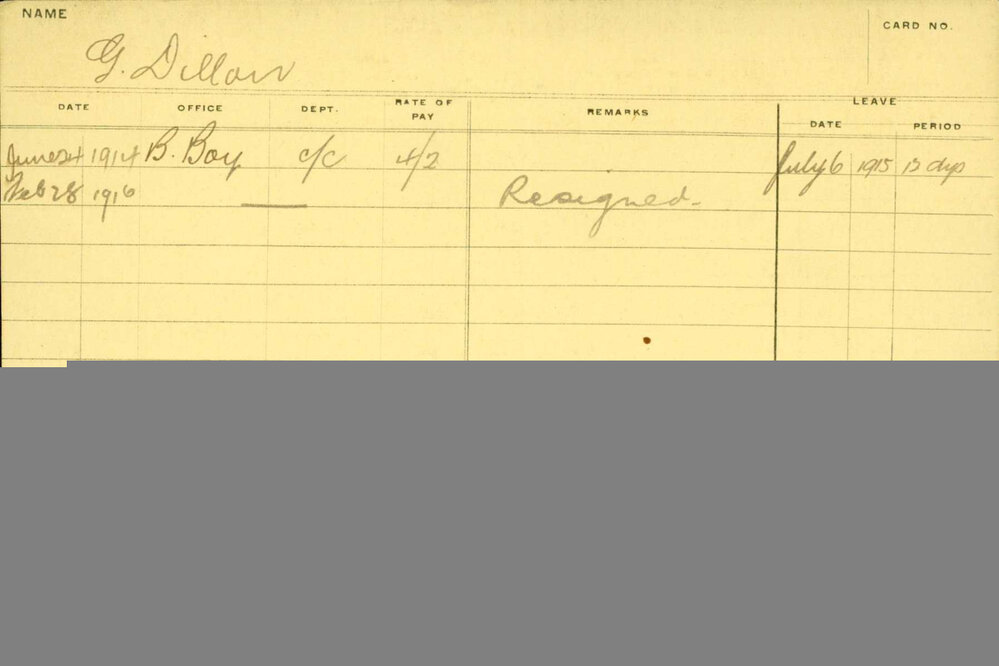 NAME
CARD NO.
G. Dillon
DATE OFFICE DEPT. RATE OF PAY REMARKS LEAVE
DATE PERIOD
June 24 1914 B. Boy c/c 4/2 July 6 1915 dys
Feb 28 1916 Resigned.